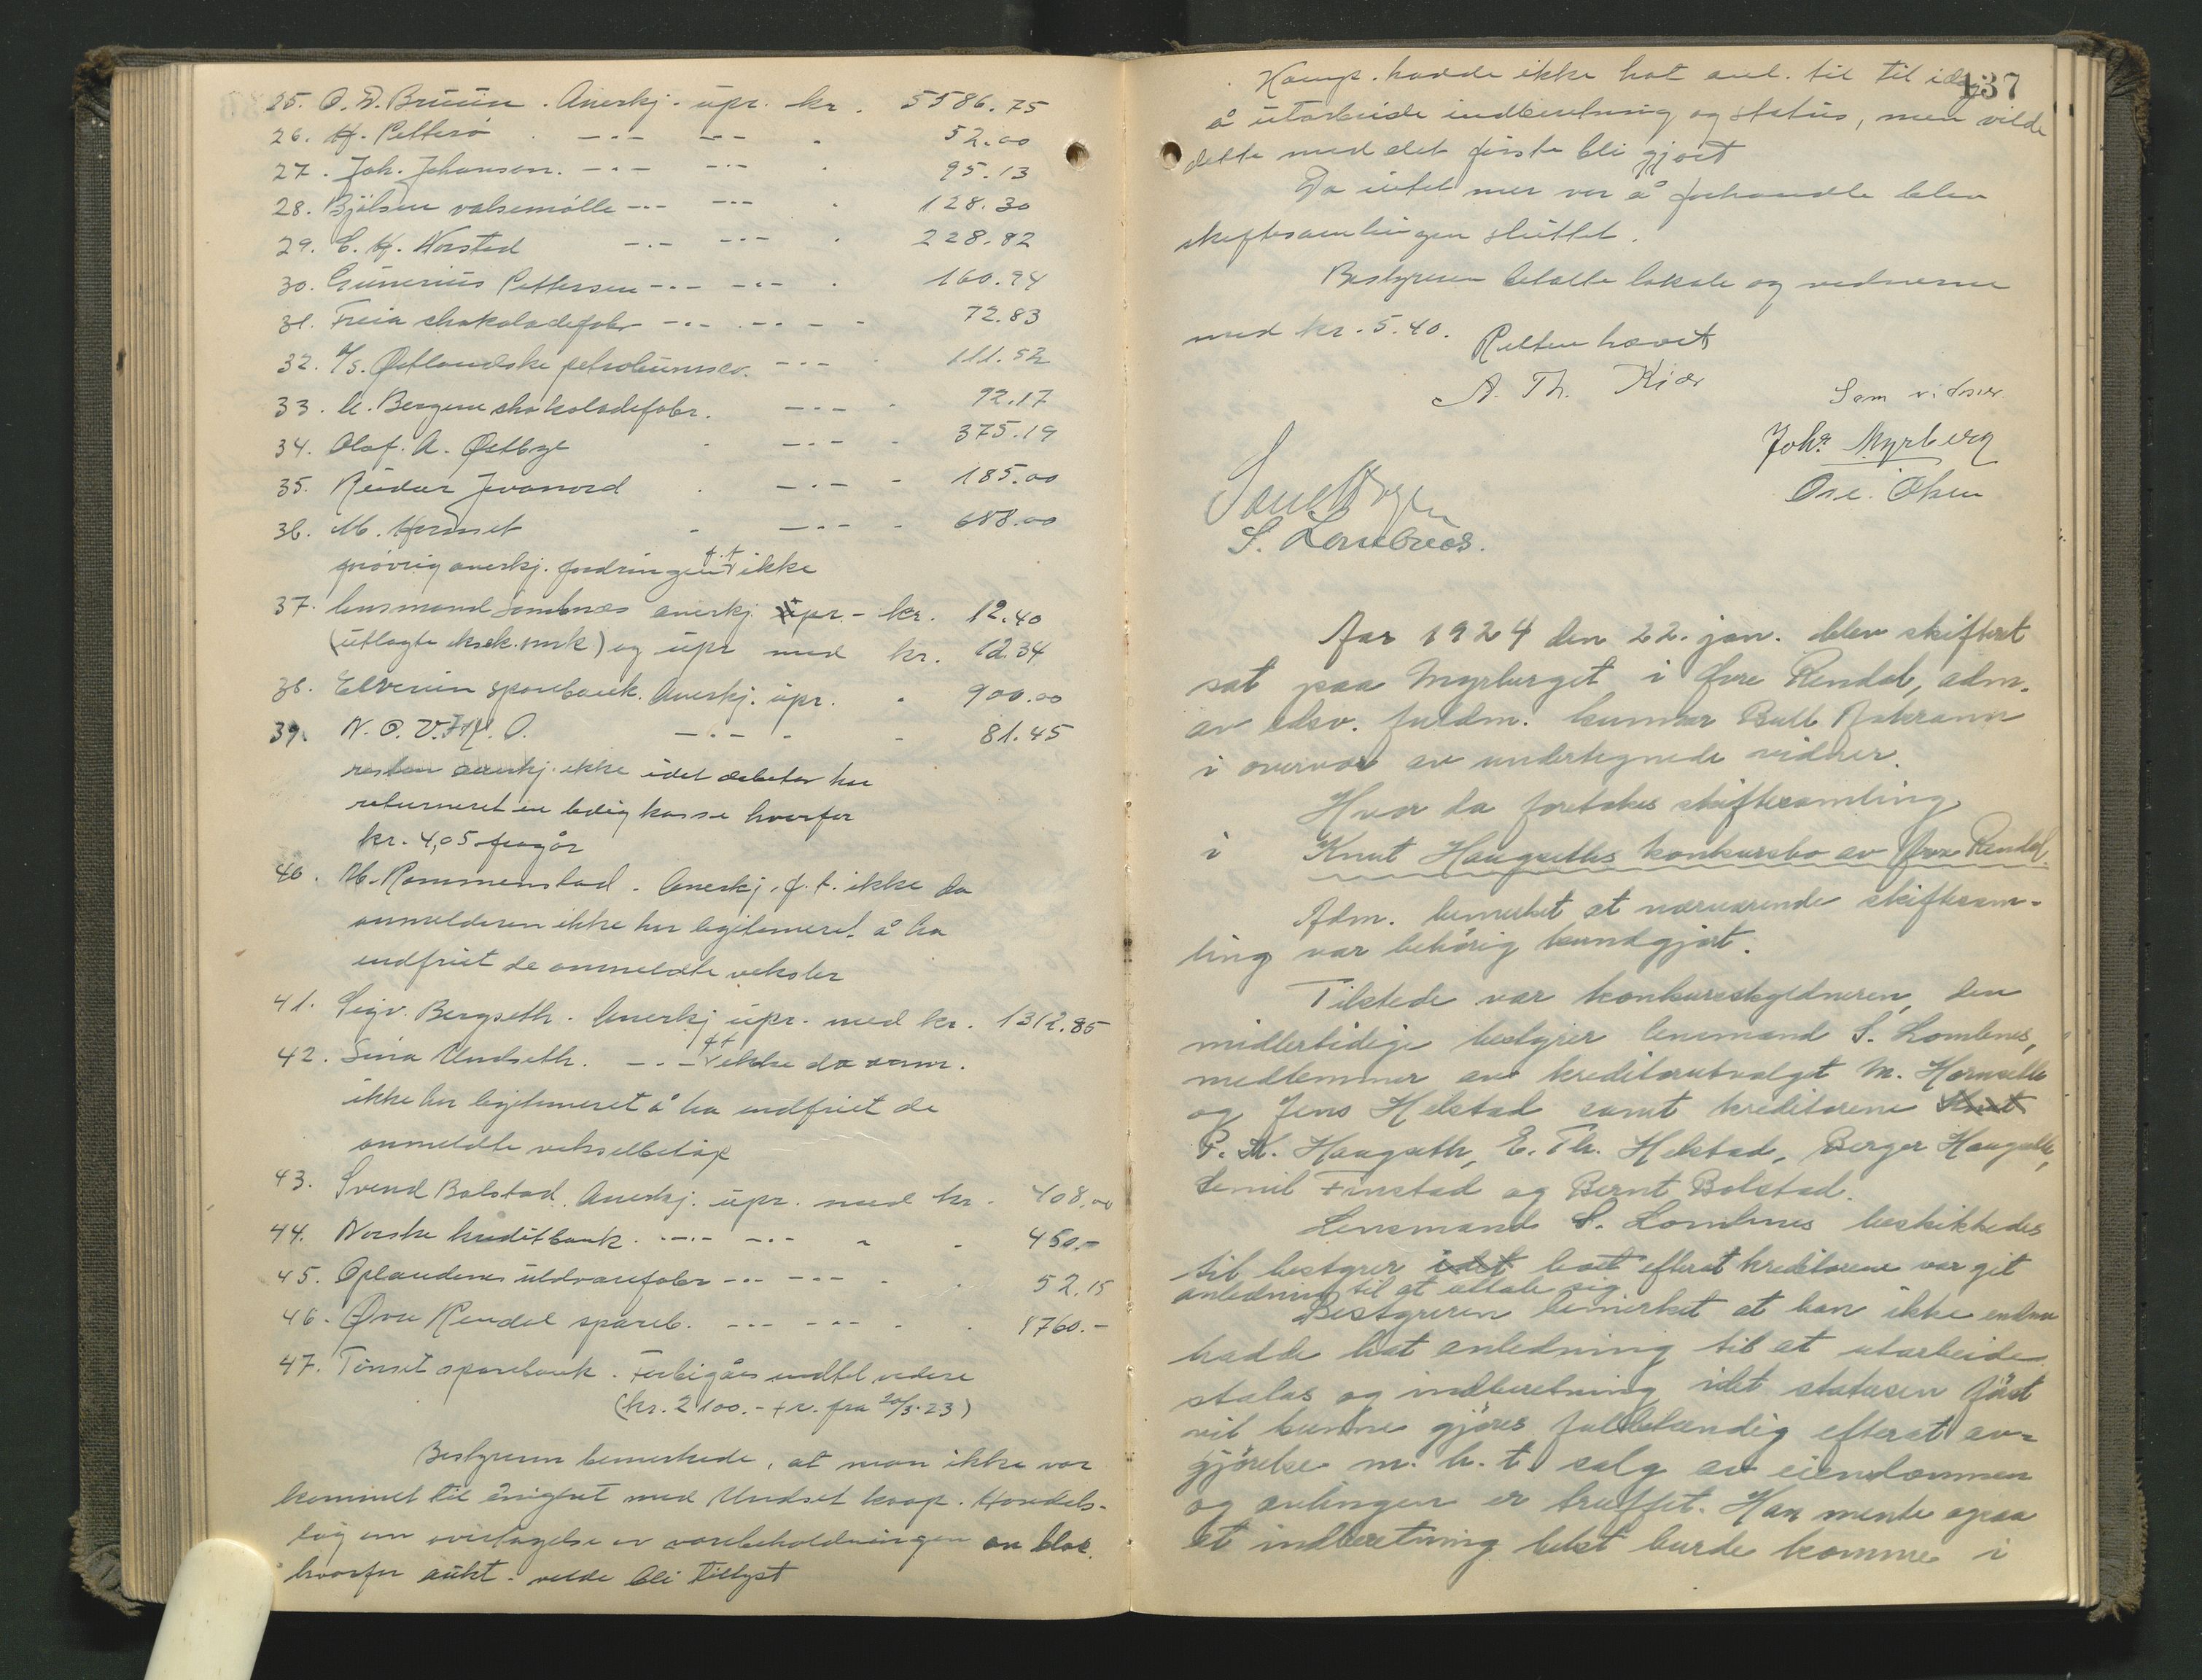 25. O. D. Bruun. Anerkj. upr. kr. 5586.75
26. H. Petterö . -"- -"- . 52.00
27. Joh. Johansen. -"- -"- . 95.13
28. Bjölsen valsemölle -"- -"- . 128.30
29. E. H. Norstad -"- -"- . 228.82
30. Gunerius Pettersen -"- -"- . 160.94
31. Freia chokoladefabr -"- -"- - - 72.83
32. A/S. Østlandske petroleumsco. -"- . 111.52
33. A. Bergene chokoladefabr. -"- - 92.17
34. Olaf. A. Østbye . -"- - 375.19
35. Reidar . -"- - 185.00
36. M. Hornset - -"- - 688.00
forövrig anerkj. fordringen f.t. ikke
37. lensmand Lombnæs anerkj. upr. - kr. 12.40
(utlagte ) og upr med kr. 12.34
38. Elverum sparebank. Anerkj. upr. - 900.00
39. -"- - - 81.45
resten anerkj. ikke idet debitor har
returneret en ledig kasse hvorfor
kr. 4,05 fragår
40. M. Rommenstad. Anerkj. f.t. ikke da
anmelderen ikke har legitimeret å ha
indfriet de anmeldte veksler
41. Sigv. Bergseth. Anerkj. upr. med kr. 1312.85
42. Undseth. -"- f.t. ikke da anm.
ikke har legitimeret å ha indfriet de
anmeldte vekselbeløp
43. Svend Bolstad. Anerkj. upr. med kr. 408.00
44. Norske kreditbank. -"- -"- - - 450.-
45. Oplandenes uldvarefabr -"- -"- - . 52.15
46. Øvre Rendal spareb. -"- -"- - . 1760.-
47. Tönset sparebank. Forbigåes indtil videre
(kr. 2100.- + r. fra 20/3.23)
Bestyreren bemerkede, at man ikke var
kommet til enighet med Undset koop. Handels-
lag om overtagelse av varebeholdningen en bloc.
hvorfor aukt. vilde bli tillyst
137
Komp. hadde ikke hat anl. til til idag
å utarbeide indberetning og status, men vilde
dette med det første bli gjort
Da intet mer var å forhandle blev
skiftesamlingen sluttet.
Bestyreren betalte lokale og vidnerne
med kr. 5.40. Retten hævet
A. Th. Kiær
Som vidner
Johs. Myrberg
Olsen
S. Lombnæs.
Aar 1924 den 22. jan. blev skifteret
sat paa Myrberget i Øvre Rendal, adm.
av edsv. fuldm. Gunnar Bull Aakrann
i overvær av undertegnede vidner.
Hvor da foretokes skiftesamling
i Knut Haugseths konkursbo av Øvre Rendal.
Adm. bemerket at nærværende skiftesam-
ling var behørig kundgjort.
Tilstede var konkursskyldneren, den
midlertidige bestyrer lensmand S. Lombnæs,
medlemmer av kreditorutvalget M. Hornseth
og Jens Helstad samt kreditorene Knut
P. K. Haugseth, E. Th. Helstad, Berger Haugseth,
Femil Finstad og Bernt Bolstad.
Lensmand S. Lombnes beskikkedes
til bestyrer idet boet efterat kreditorene var git
anledning til at uttale sig.
Bestyreren bemerket at han ikke endnu
hadde hat anledning til at utarbeide
status og indberetning idet statusen først
vil kunne gjøres fuldstændig efterat av-
gjørelse m. h. t. salg av eiendommen
og avlingen er truffet. Han mente ogsaa
at indberetning helst burde komme i